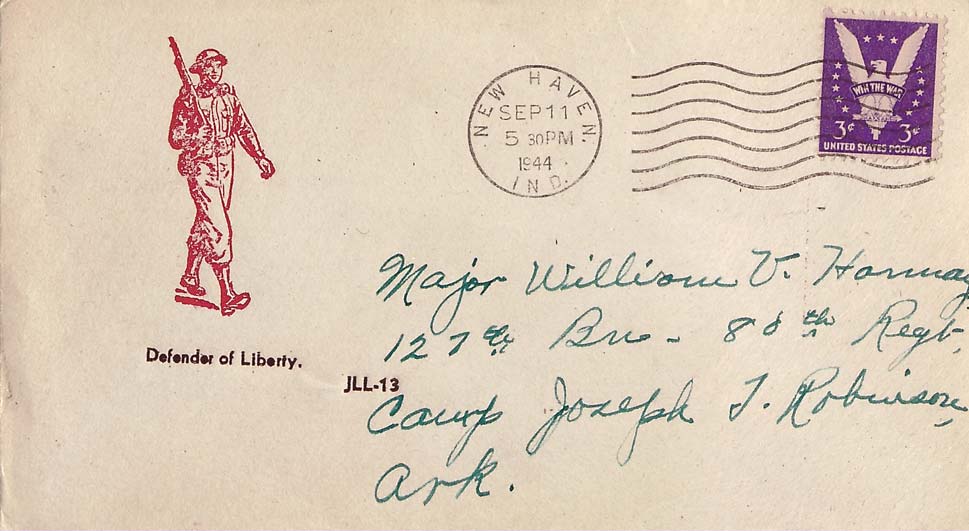 NEW HAVEN.
SEP 11
5 30 PM
1944
IND.
WIN THE WAR
3¢ 3¢
UNITED STATES POSTAGE
Major William V.
127th Bn - 88th Regt.
Camp Joseph T. Robinson,
Ark.
Defender of Liberty.
JLL-13